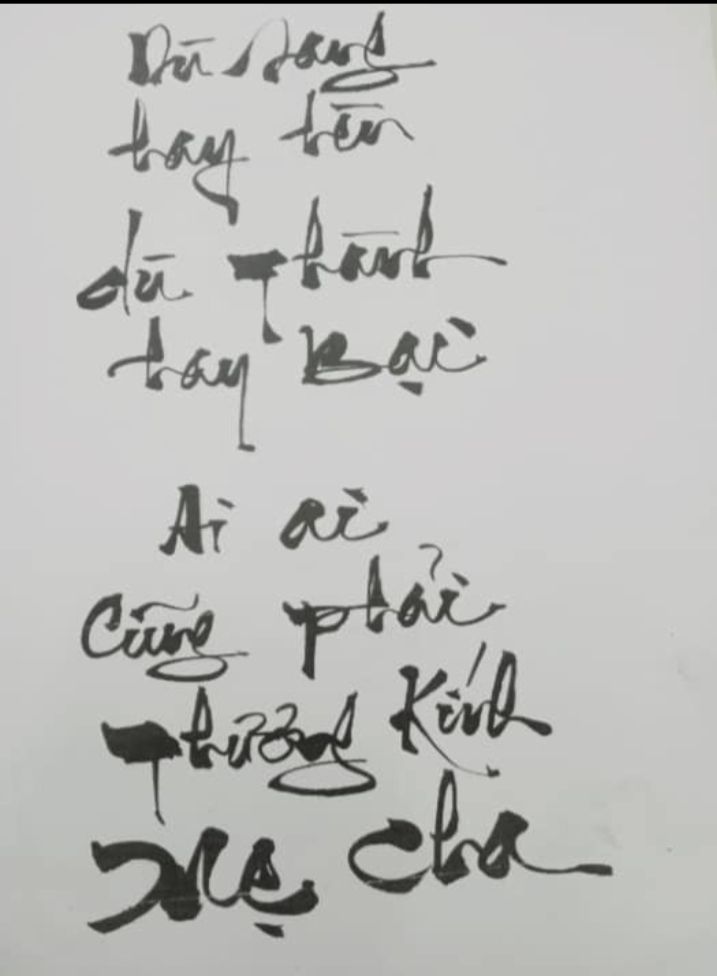 Dù sang
hay hèn
dù Thành
hay Bại
Ai ai
Cũng phải
Thương Kính
Mẹ cha